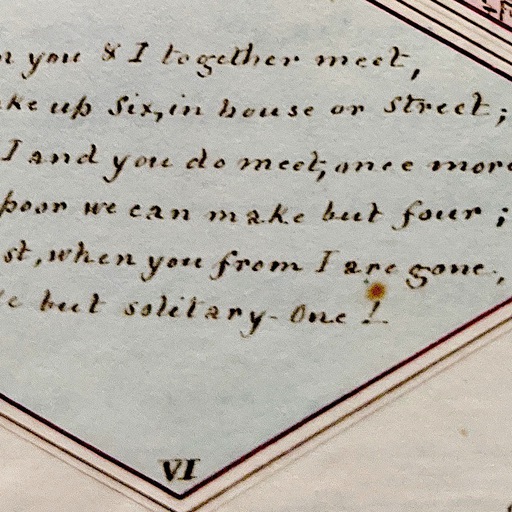 you & I together meet,
up Six, in house or street;
I and you do meet, once more
poor we can make but four;
when you from I are gone,
but solitary One!
VI